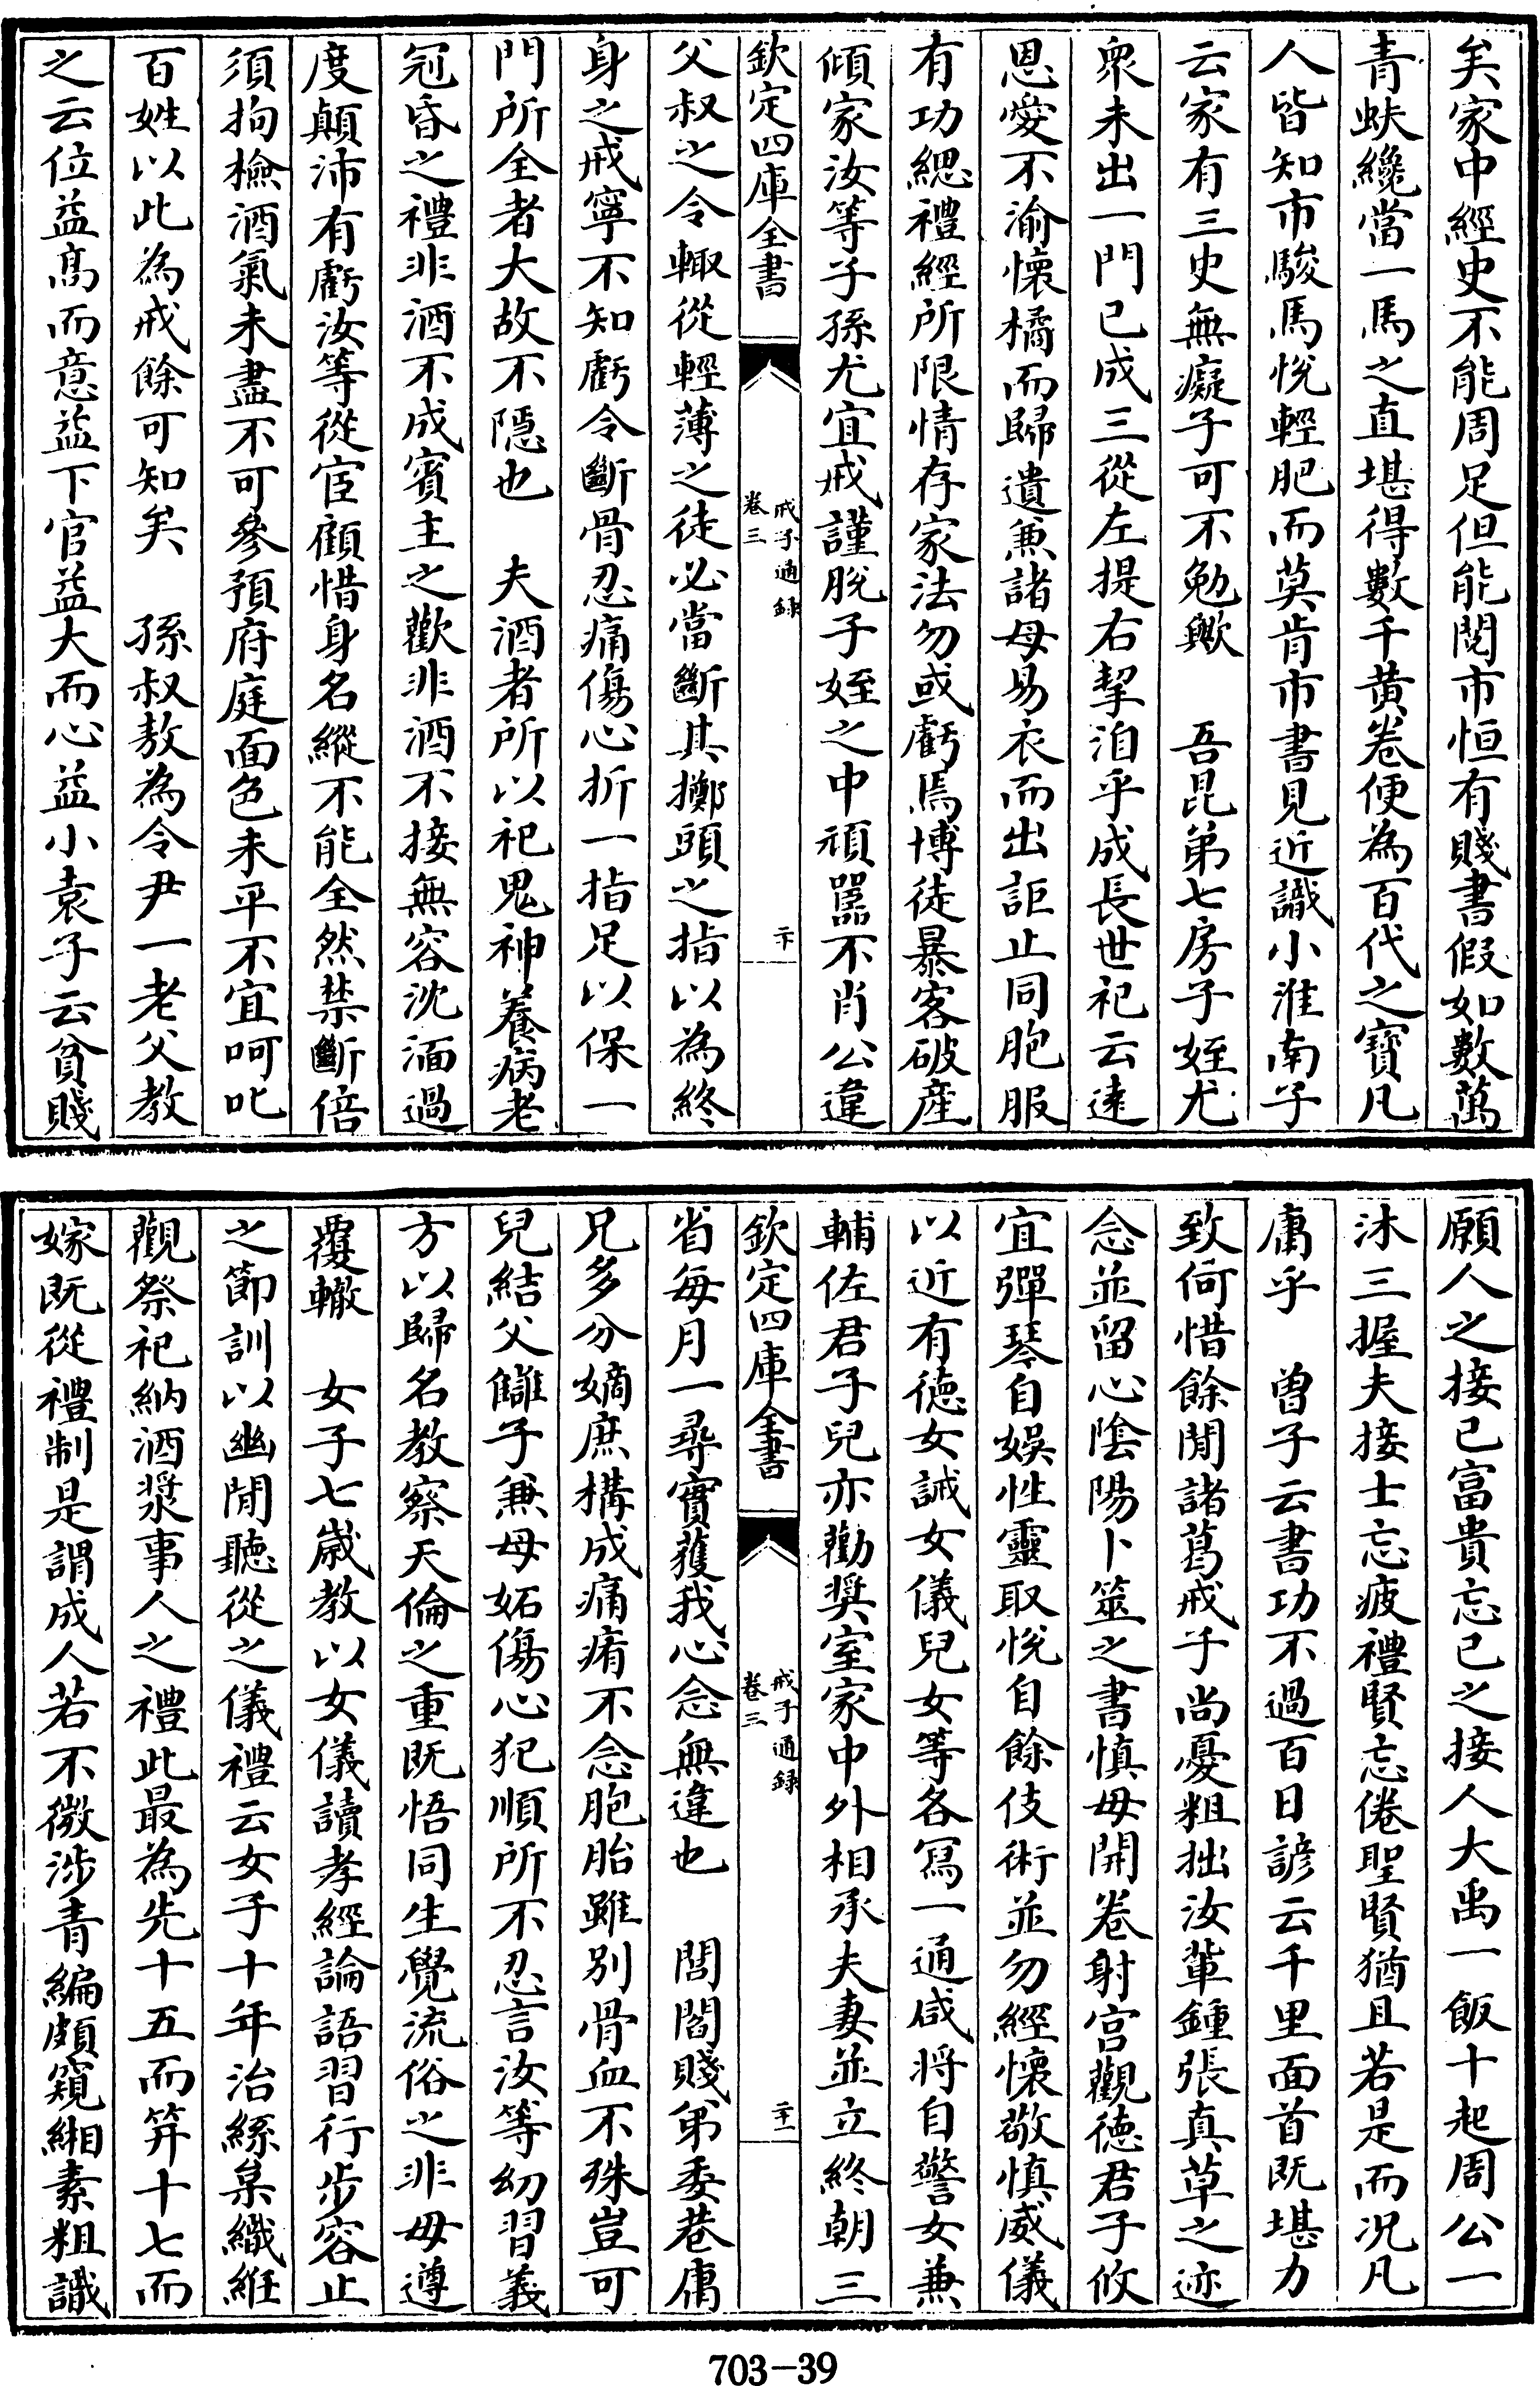 矣家中經史不能周足但能閱市恒有賤書假如數萬
青蚨纔當一馬之直堪得數千黄卷便為百代之寶凡
人皆知市駿馬悅輕肥而莫肯市書見近識小淮南子
云家有三史無癡子可不勉歟　吾昆弟七房子姪尤
衆未出一門已成三從左提右挈洎乎成長世祀云逺
恩愛不渝懷橘而歸遺兼諸母易衣而出詎止同胞服
有功緦禮經所限情存家法勿或虧焉博徒暴客破產
傾家汝等子孫尤宜戒謹脫子姪之中頑嚚不肖公違
欽定四庫全書
戒子通錄
卷三
二十
父叔之令輙從輕薄之徒必當斷其擲頭之指以為終
身之戒寧不知虧令斷骨忍痛傷心折一指足以保一
門所全者大故不隱也　夫酒者所以祀鬼神養病老
冠昏之禮非酒不成賓主之歡非酒不接無容沈湎過
度顛沛有虧汝等從宦顧惜身名縱不能全然禁斷倍
須拘檢酒氣未盡不可參預府庭面色未平不宜呵叱
百姓以此為戒餘可知矣　孫叔敖為令尹一老父教
之云位益髙而意益下官益大而心益小袁子云貧賤
願人之接已富貴忘已之接人大禹一飯十起周公一
沐三握夫接士忘疲禮賢忘倦聖賢猶且若是而况凡
庸乎　曽子云書功不過百日諺云千里面首既堪力
致何惜餘閒諸葛戒子尚憂粗拙汝輩鍾張真草之迹
念並留心陰陽卜筮之書慎毋開卷射宫觀徳君子攸
宜彈琴自娛性靈取悅自餘伎術並勿經懷敬慎威儀
以近有徳女誡女儀兒女等各冩一通咸將自警女兼
輔佐君子兒亦勸奬室家中外相承夫妻並立終朝三
欽定四庫全書
戒子通錄
卷三
二十一
省每月一尋實獲我心念無違也　閭閻賤弟委巷庸
兄多分嫡庶構成痛痏不念胞胎雖别骨血不殊豈可
兒結父讎子兼母妬傷心犯順所不忍言汝等幼習義
方以歸名教察天倫之重既悟同生覺流俗之非毋遵
覆轍　女子七歲教以女儀讀孝經論語習行步容止
之節訓以幽閒聽從之儀禮云女子十年治絲枲織紝
觀祭祀納酒漿事人之禮此最為先十五而笄十七而
嫁既從禮制是謂成人若不微涉青編頗窺緗素粗識
703-39